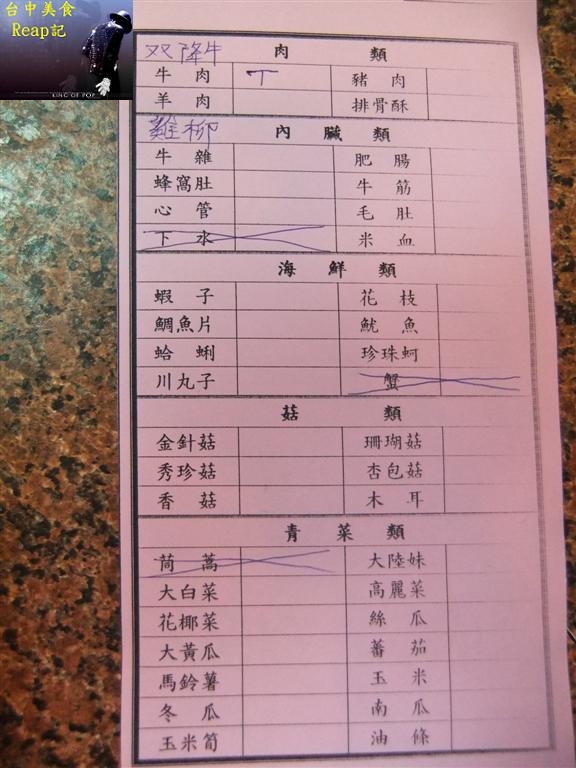 台中美食
Reap記
KING OF POP
双降牛 肉 類
牛肉 丅 豬肉
羊肉 排骨酥
雞柳 內臟類
牛雜 肥腸
蜂窩肚 牛筋
心管 毛肚
下水 米血
海鮮類
蝦子 花枝
鯛魚片 魷魚
蛤蜊 珍珠蚵
川丸子 蟹
菇類
金針菇 珊瑚菇
秀珍菇 杏包菇
香菇 木耳
青菜類
茼蒿 大陸妹
大白菜 高麗菜
花椰菜 絲瓜
大黃瓜 蕃茄
馬鈴薯 玉米
冬瓜 南瓜
玉米筍 油條